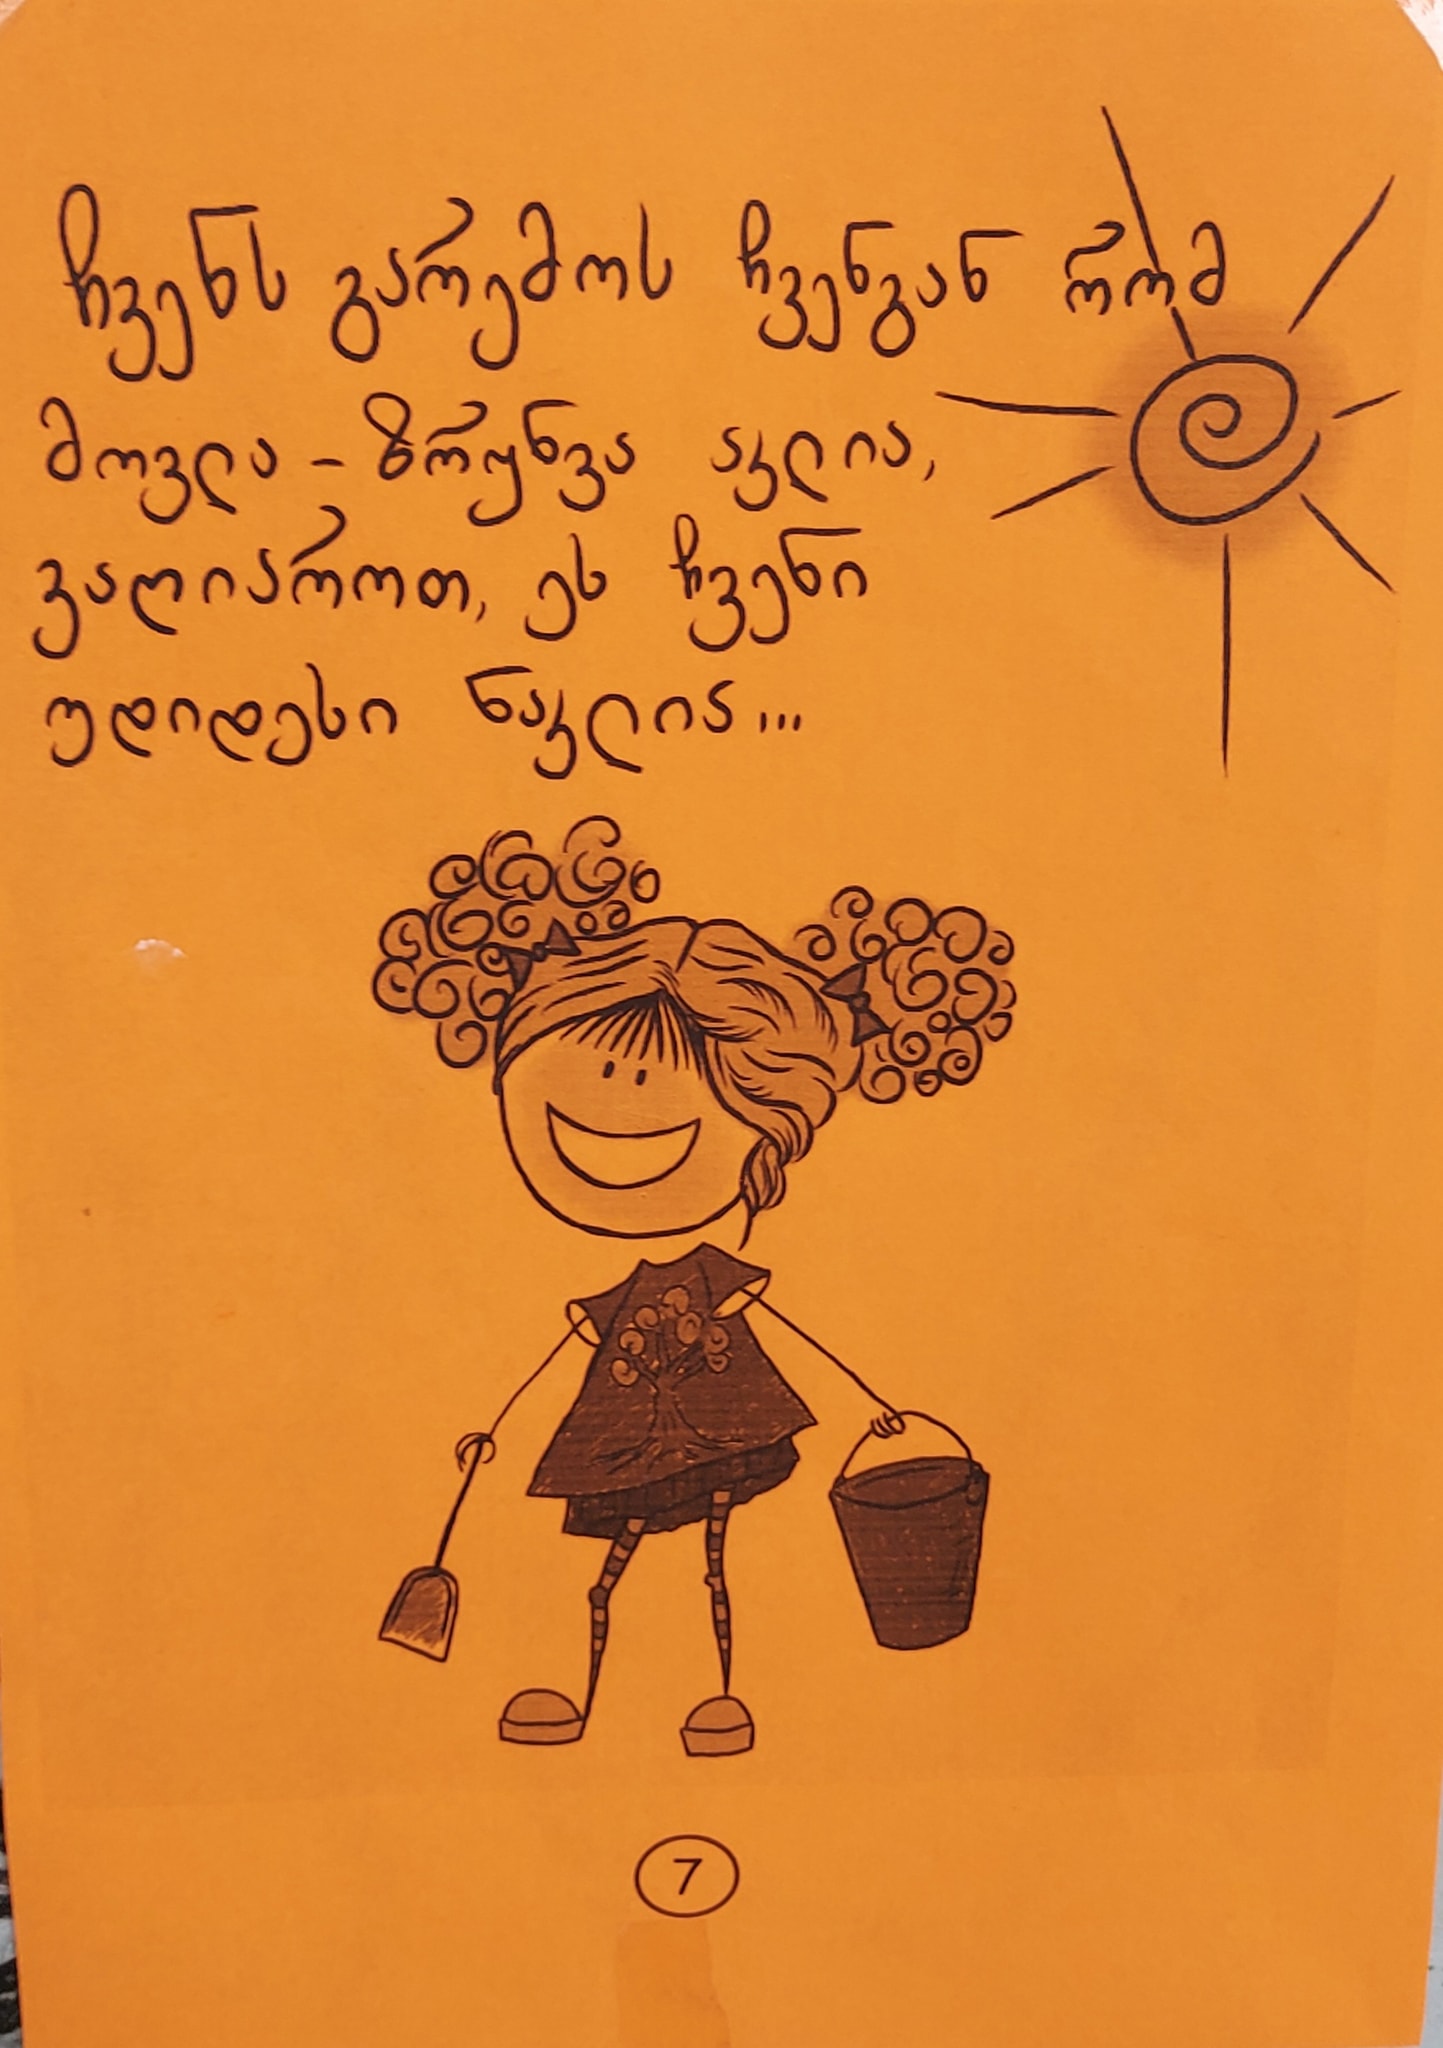 ჩვენს გარემოს ჩვენგან რომ
მოვლა - ზრუნვა აკლია,
ვაღიაროთ, ეს ჩვენი
უდიდესი ნაკლია...
7